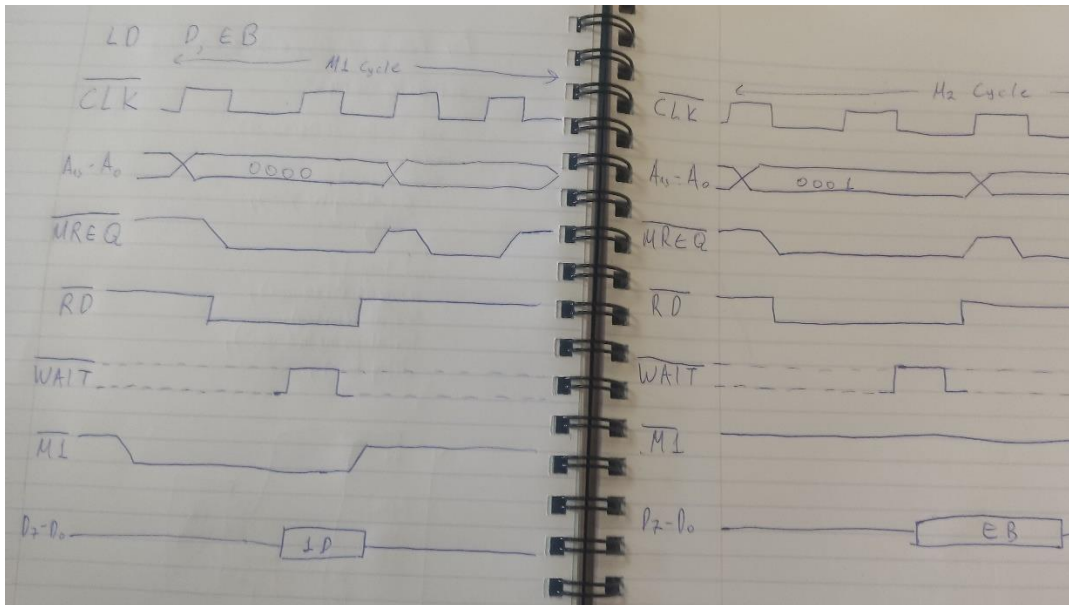 LD D, EB
M1 Cycle
CLK
A15-A0 0000
MREQ
RD
WAIT
M1
D7-D0 1D
M2 Cycle
CLK
A15-A0 0001
MREQ
RD
WAIT
M1
D7-D0 EB